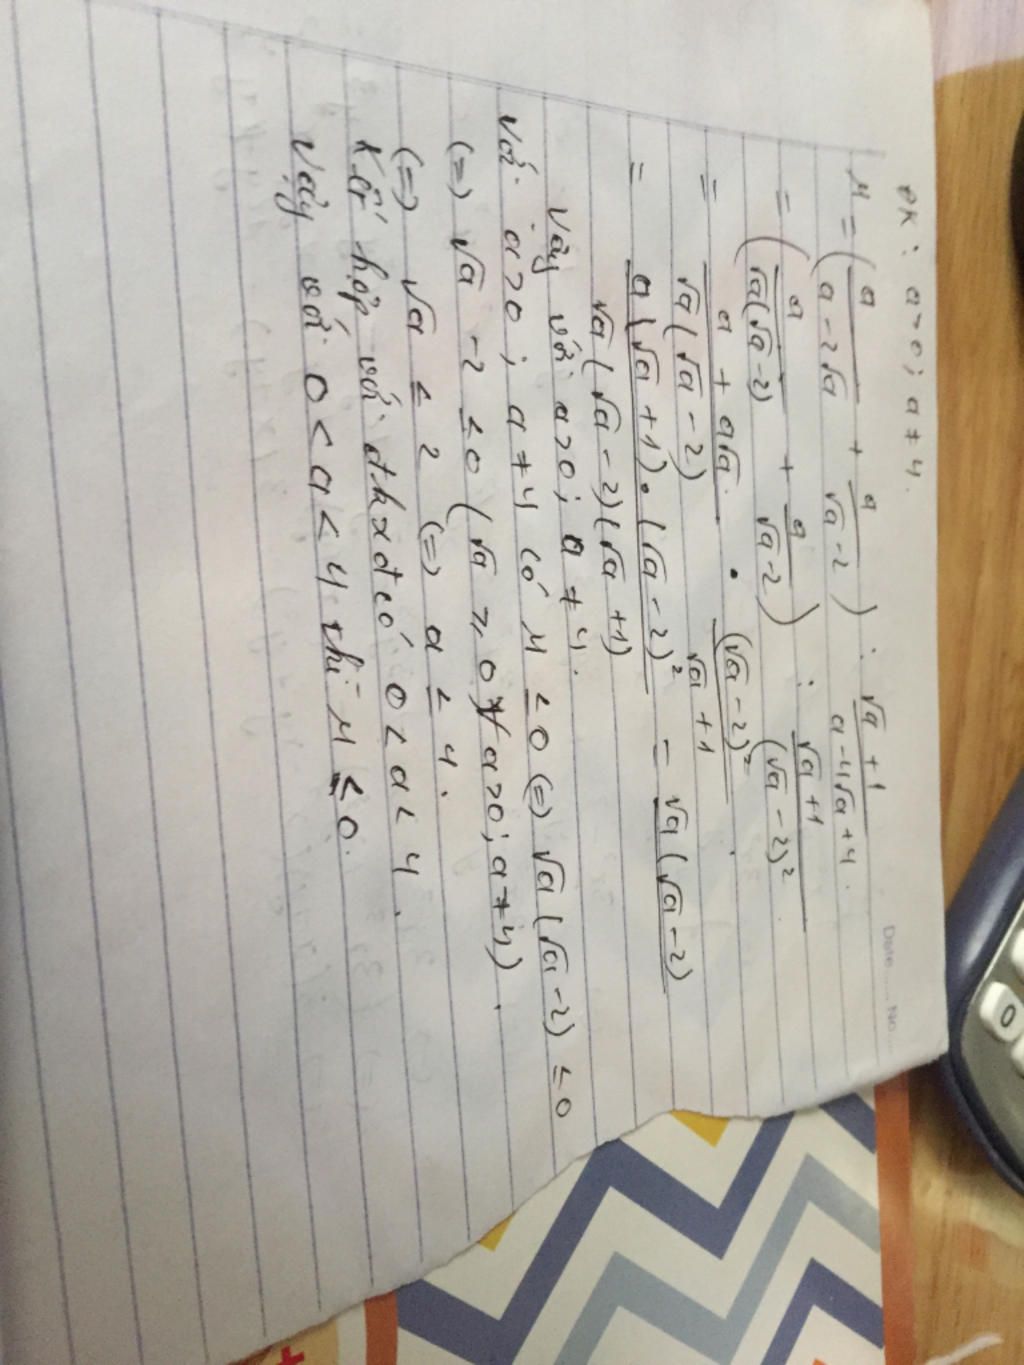 Date..... No.....
ĐK : a > 0 ; a ≠ 4.
M = ( a / (a - 2√a) + a / (√a - 2) ) : (√a + 1) / (a - 4√a + 4).
= ( a / (√a(√a - 2)) + a / (√a - 2) ) : (√a + 1) / (√a - 2)²
= (a + a√a) / (√a(√a - 2)) • (√a - 2)² / (√a + 1).
= a(√a + 1) • (√a - 2)² / (√a(√a - 2)(√a + 1)) = √a(√a - 2)
Vậy với a > 0 ; a ≠ 4.
Với a > 0 ; a ≠ 4 có M ≤ 0 (=) √a(√a - 2) ≤ 0
(=) √a - 2 ≤ 0 (√a ≥ 0 ∀ a > 0 ; a ≠ 4).
(=) √a ≤ 2 (=) a ≤ 4.
Kết hợp với đkxđ có 0 < a < 4.
Vậy với 0 < a < 4 thì M ≤ 0.
0